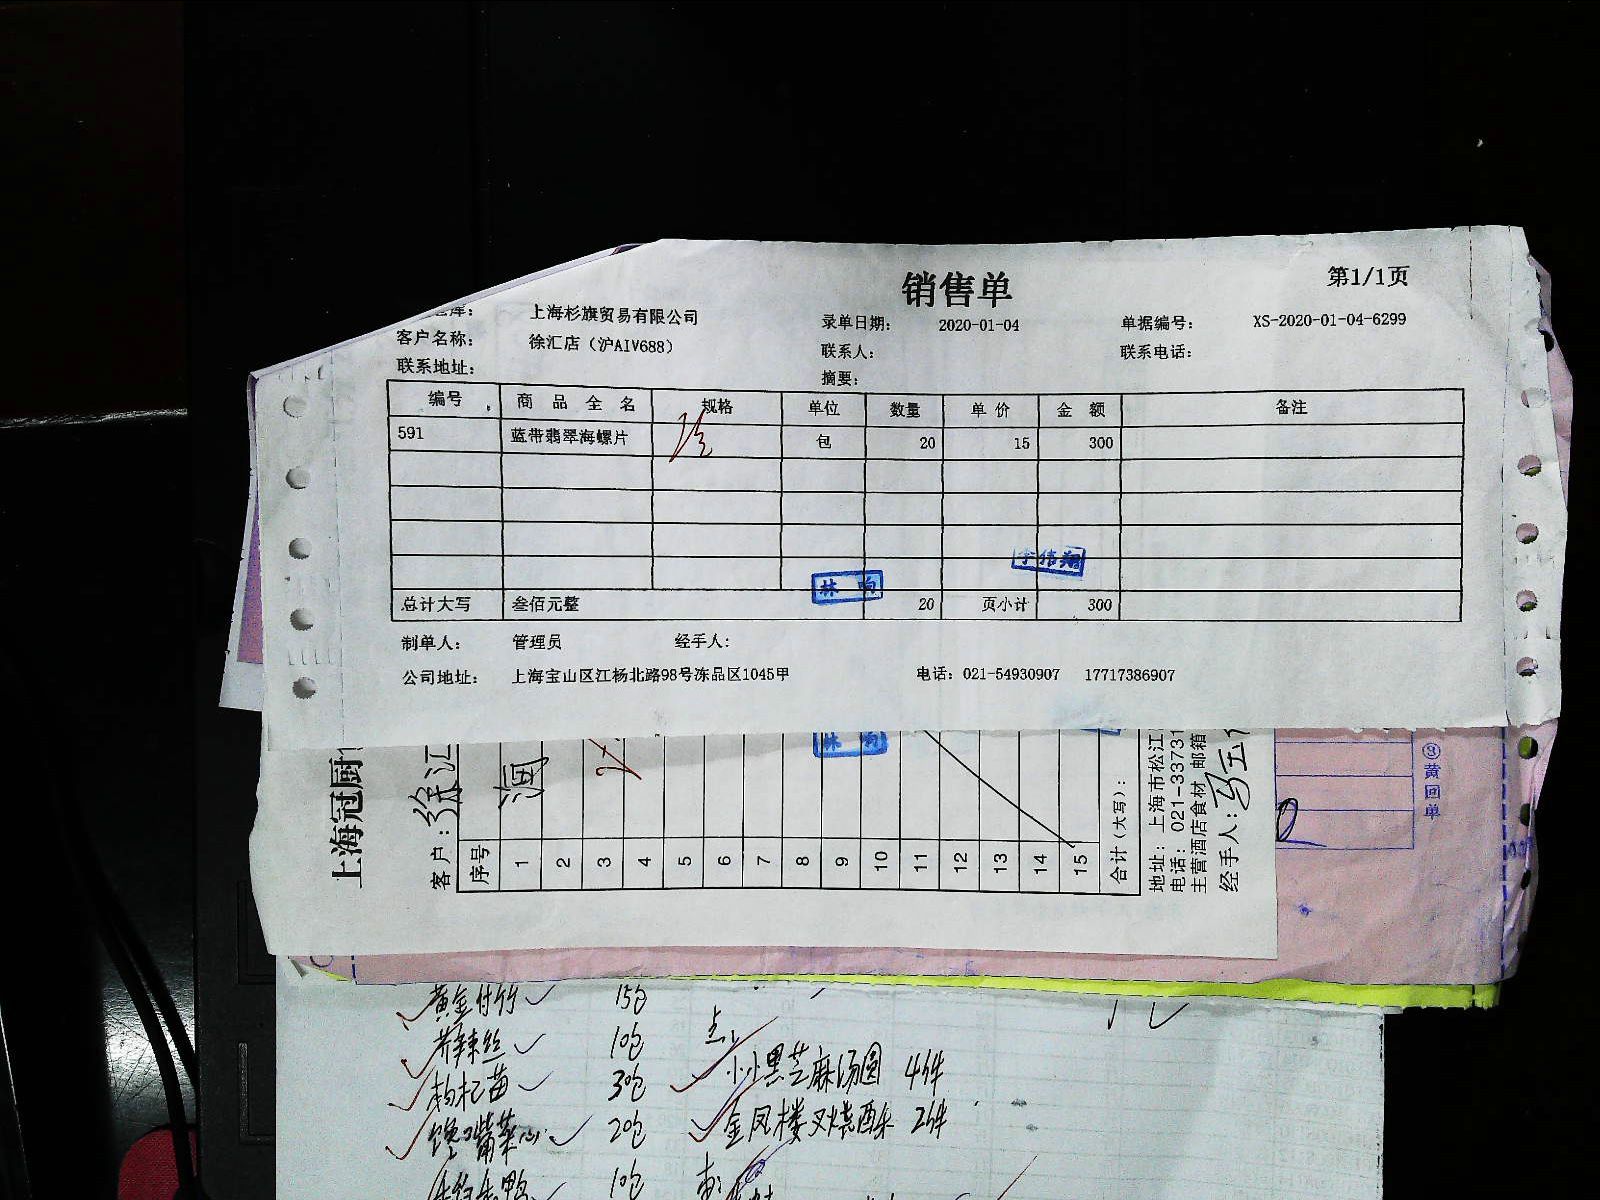 销售单
第1/1页
上海杉旗贸易有限公司
录单日期: 2020-01-04 单据编号: XS-2020-01-04-6299
客户名称: 徐汇店（沪AIV688）
联系人: 联系电话:
联系地址:
摘要:
编号 商品全名 规格 单位 数量 单价 金额 备注
591 蓝带翡翠海螺片 包 20 15 300
李伟翔
林响
总计大写 叁佰元整 20 页小计 300
制单人: 管理员 经手人:
公司地址: 上海宝山区江杨北路98号冻品区1045甲 电话: 021-54930907 17717386907
上海冠厨
客户: 徐汇
序号 1 2 3 4 5 6 7 8 9 10 11 12 13 14 15
林响
合计(大写):
地址: 上海市松江
电话: 021-33731
主营酒店食材 邮箱
经手人:
③黄回单
黄金付竹 15包
芥辣丝 10包
枸杞苗 3包 小小黑芝麻汤圆 4件
馋嘴菜心 20包 金凤楼叉烧酥 2件
10包